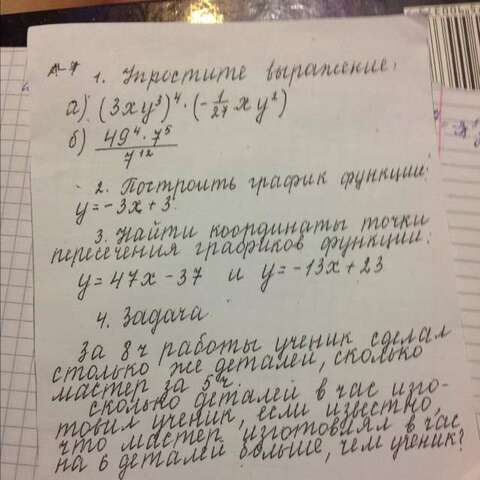 А-7
1. Упростите выражение:
а) (3xy³)⁴ · (-1/27 xy²)
б) 49⁴ · 7⁵ / 7¹²
2. Построить график функции:
y = -3x + 3.
3. Найти координаты точки
пересечения графиков функций:
y = 47x - 37 и y = -13x + 23
4. Задача.
За 8 ч работы ученик сделал
столько же деталей, сколько
мастер за 5 ч.
Сколько деталей в час изго-
товил ученик, если известно,
что мастер изготовлял в час
на 6 деталей больше, чем ученик?